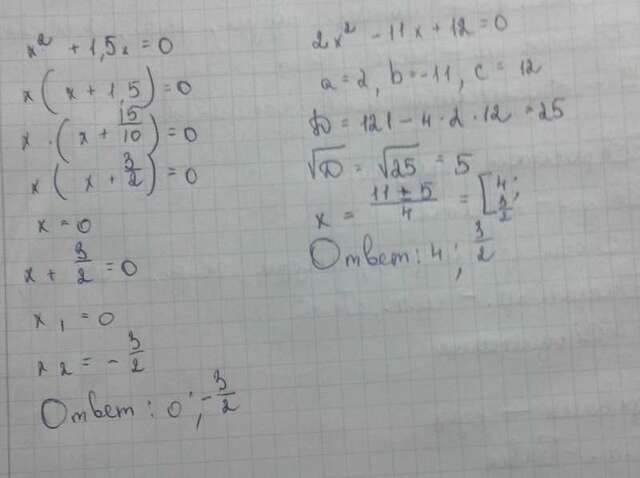 x² + 1,5x = 0
x(x + 1,5) = 0
x · (x + 15/10) = 0
x(x + 3/2) = 0
x = 0
x + 3/2 = 0
x₁ = 0
x₂ = -3/2
Ответ: 0; -3/2
2x² - 11x + 12 = 0
a = 2, b = -11, c = 12
D = 121 - 4 · 2 · 12 = 25
√D = √25 = 5
x = (11 ± 5)/4 = [4; 3/2
Ответ: 4; 3/2